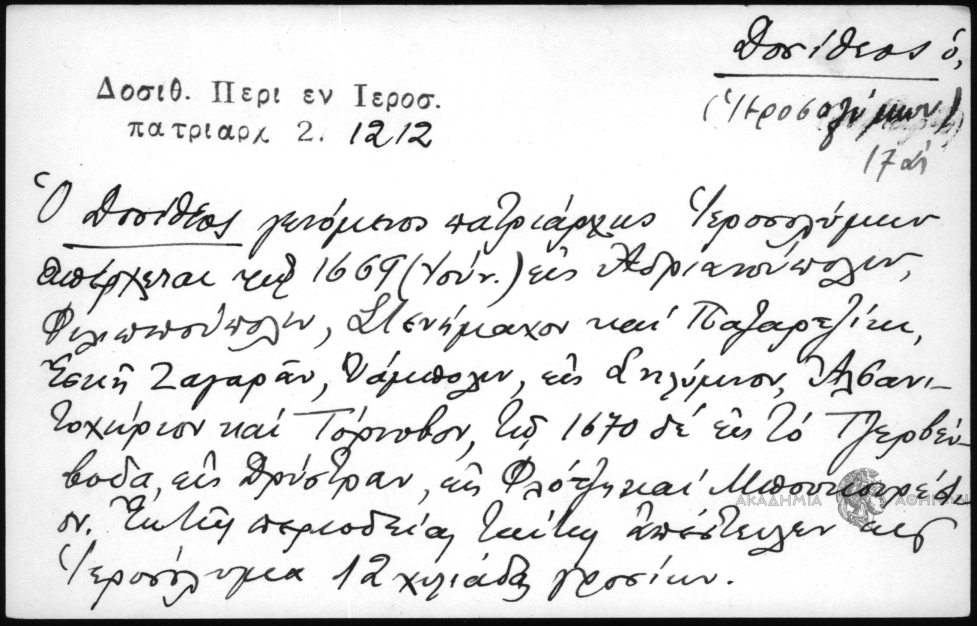 Δοσίθεος ὁ,
(Ἱεροσολύμων)
17 αἰ
Δοσιθ. Περι εν Ιεροσ.
πατριαρχ 2. 1212
Ὁ Δοσίθεος γενόμενος πατριάρχης Ἱεροσολύμων
ἀπέρχεται τῷ 1669 (Ἰούν.) εἰς Ἀδριανούπολιν,
Φιλιππούπολιν, Στενήμαχον καί Παζαρτζίκ,
Ἐσκῆ Ζαγαρᾶν, Ἰάμπολιν, εἰς Σηλύμνον, Ἀλβανι-
τοχώριον καί Τόρνοβον, τῷ 1670 δέ εἰς τό Τζερβέν-
βοδα, εἰς Δρύστραν, εἰς καί Μπουκουρέστι-
ον. Ἐκ τῆς περιοδείας ταύτης ἀπέστειλεν εἰς
Ἱεροσόλυμα 12 χιλιάδας γροσίων.
ΑΚΑΔΗΜΙΑ ΑΘΗΝΩΝ